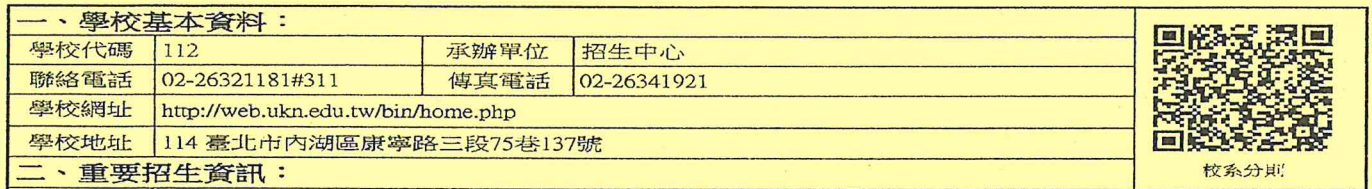 一、學校基本資料：
學校代碼 112 承辦單位 招生中心
聯絡電話 02-26321181#311 傳真電話 02-26341921
學校網址 http://web.ukn.edu.tw/bin/home.php
學校地址 114 臺北市內湖區康寧路三段75巷137號
校系分則
二、重要招生資訊：